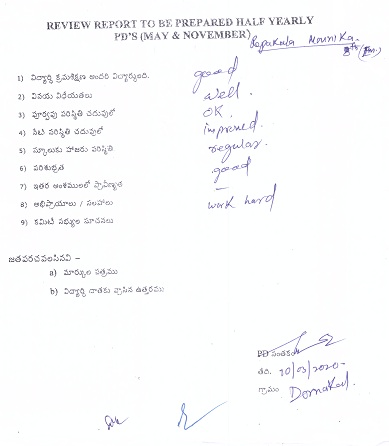 REVIEW REPORT TO BE PREPARED HALF YEARLY
PD'S (MAY & NOVEMBER)
Mounika
1) విద్యార్థి క్రమశిక్షణ good
2) వినయ విధేయతలు well.
3) పూర్వపు పరిస్థితి చదువులో OK.
4) నేటి పరిస్థితి చదువులో improved.
5) స్కూలుకు హాజరు పరిస్థితి regular.
6) పరిశుభ్రత good
7) ఇతర అంశములలో ప్రావీణ్యత –
8) అభిప్రాయాలు / సలహాలు work hard
9) కమిటీ సభ్యుల సూచనలు
జతపరచవలసినవి –
a) మార్కుల పత్రము
b) విద్యార్థి దాతకు వ్రాసిన ఉత్తరము
PD సంతకం
తేది. 10/03/2020-
గ్రామం Dornakal.